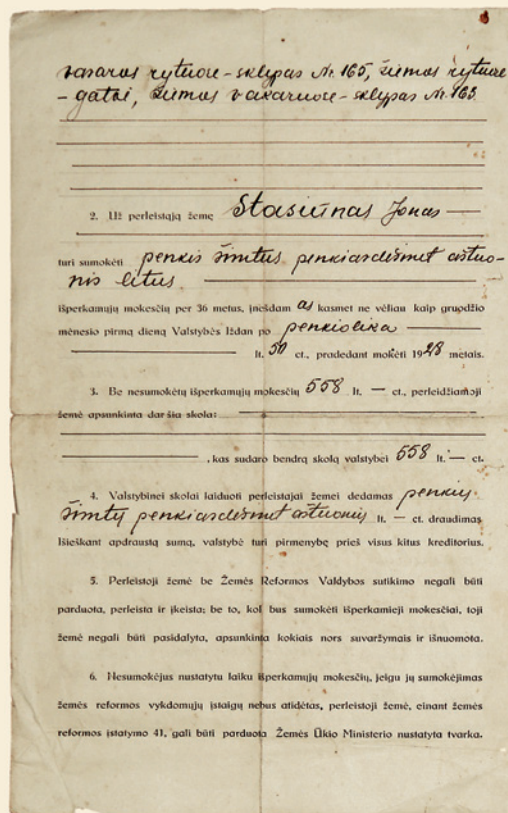 vasaros rytuose – sklypas Nr. 165, žiemos rytuose
– gatvė, žiemos vakaruose – sklypas Nr. 163
2. Už perleistąją žemę Stasiūnas Jonas —
turi sumokėti penkis šimtus penkiasdešimt aštuo-
nis litus
išperkamųjų mokesčių per 36 metus, įnešdamas kasmet ne vėliau kaip gruodžio
mėnesio pirmą dieną Valstybės Iždan po penkiolika
lt. 50 ct., pradedant mokėti 1928 metais.
3. Be nesumokėtų išperkamųjų mokesčių 558 lt. — ct., perleidžiamoji
žemė apsunkinta dar šia skola:
, kas sudaro bendrą skolą valstybei 558 lt. — ct.
4. Valstybinei skolai laiduoti perleistajai žemei dedamas penkių
šimtų penkiasdešimt aštuonių lt. — ct. draudimas
Išieškant apdraustą sumą, valstybė turi pirmenybę prieš visus kitus kreditorius.
5. Perleistoji žemė be Žemės Reformos Valdybos sutikimo negali būti
parduota, perleista ir įkeista; be to, kol bus sumokėti išperkamieji mokesčiai, toji
žemė negali būti pasidalyta, apsunkinta kokiais nors suvaržymais ir išnuomota.
6. Nesumokėjus nustatytu laiku išperkamųjų mokesčių, jeigu jų sumokėjimas
žemės reformos vykdomųjų įstaigų nebus atidėtas, perleistoji žemė, einant žemės
reformos įstatymo 41, gali būti parduota Žemės Ūkio Ministerio nustatyta tvarka.